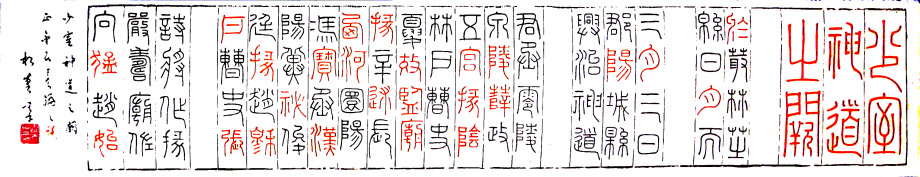 少室
神道
之闕
於叢林芝
日月而
三月三日
郡陽城縣
興治神道
君丞零陵
泉陵薛政
五官掾陰
林戶曹史
夏效監廟
掾辛述長
西河圜陽
馮寶丞漢
陽冀祕俊
廷掾趙穆
戶曹史張
詩將作掾
嚴壽廟佐
向猛趙始
少室神道之闕